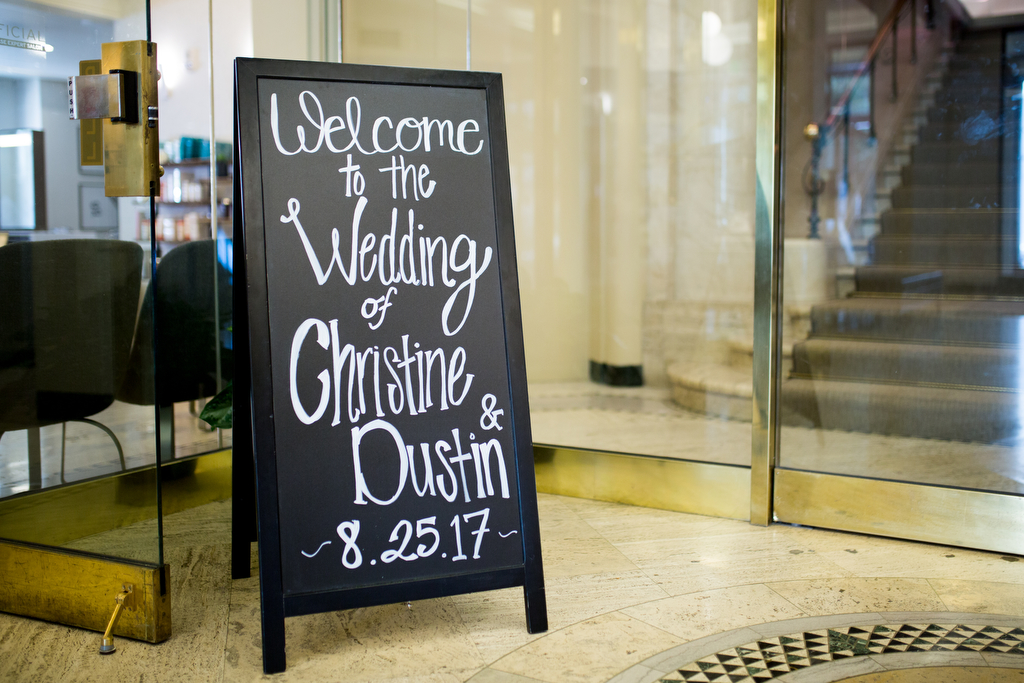 Welcome
to the
Wedding
of
Christine
&
Dustin
~ 8.25.17 ~